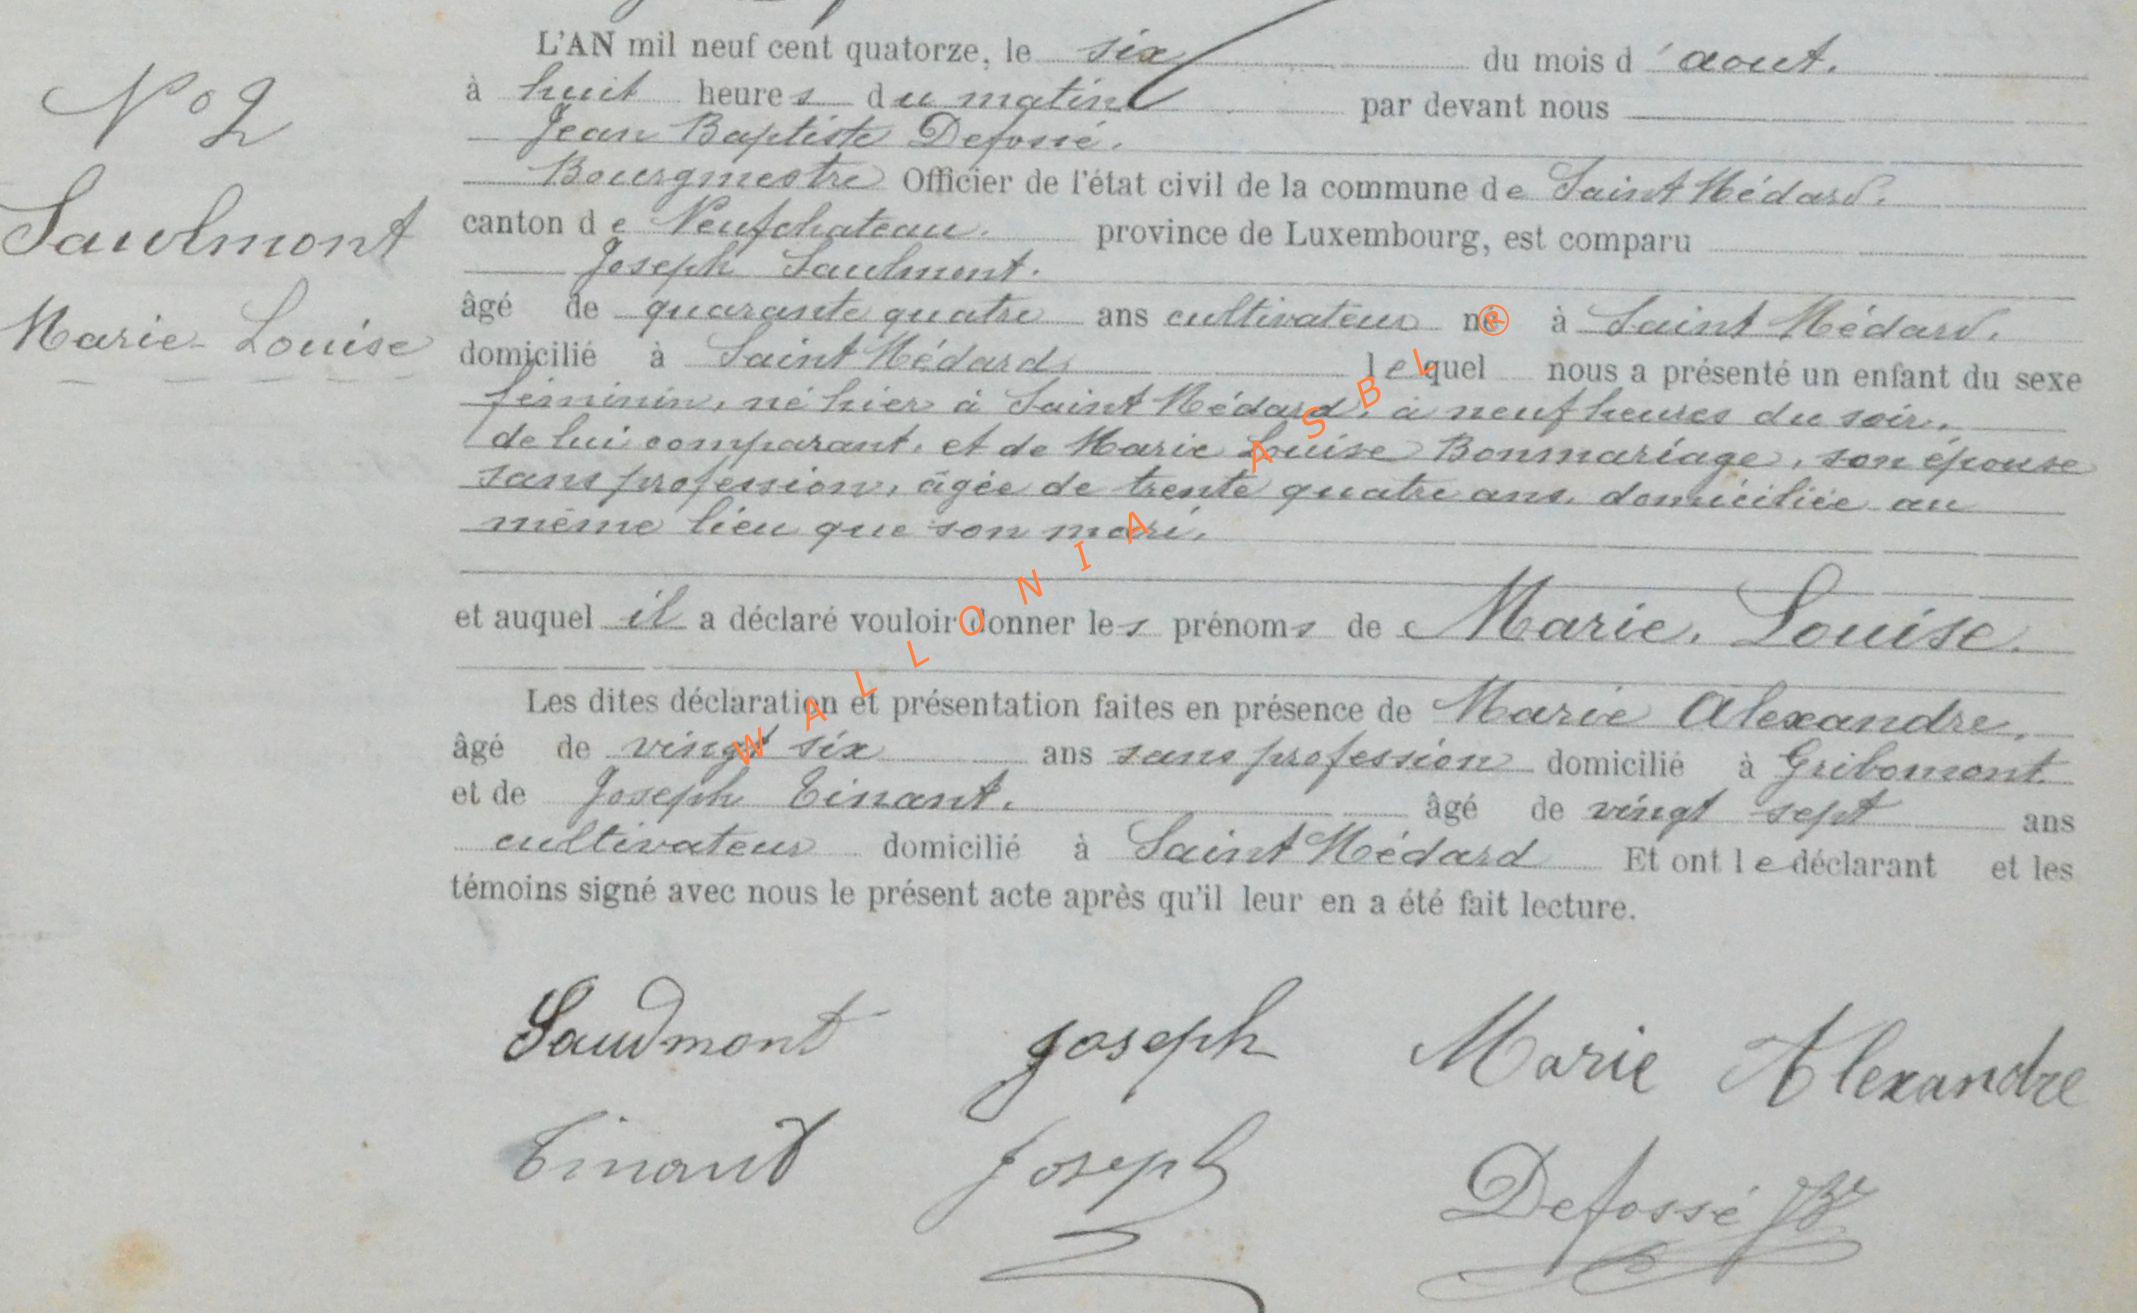 L'AN mil neuf cent quatorze, le six du mois d'aout.
à huit heures du matin par devant nous
Jean Baptiste Defossé.
Bourgmestre Officier de l'état civil de la commune de Saint Médard.
canton de Neufchateau. province de Luxembourg, est comparu
Joseph Saudmont.
âgé de quarante quatre ans cultivateur né à Saint Médard.
domicilié à Saint Médard lequel nous a présenté un enfant du sexe
féminin, né hier à Saint Médard, à neuf heures du soir,
de lui comparant, et de Marie Louise Bonmariage, son épouse
sans profession, âgée de trente quatre ans, domiciliée au
même lieu que son mari.
et auquel il a déclaré vouloir donner les prénoms de Marie, Louise.
Les dites déclaration et présentation faites en présence de Marie Alexandre,
âgé de vingt six ans sans profession domicilié à Gribomont
et de Joseph Tinant. âgé de vingt sept ans
cultivateur domicilié à Saint Médard Et ont le déclarant et les
témoins signé avec nous le présent acte après qu'il leur en a été fait lecture.
N° 2
Saudmont
Marie-Louise
Saudmont Joseph Marie Alexandre
Tinant Joseph Defossé JB
WALLONIA ASBL ®